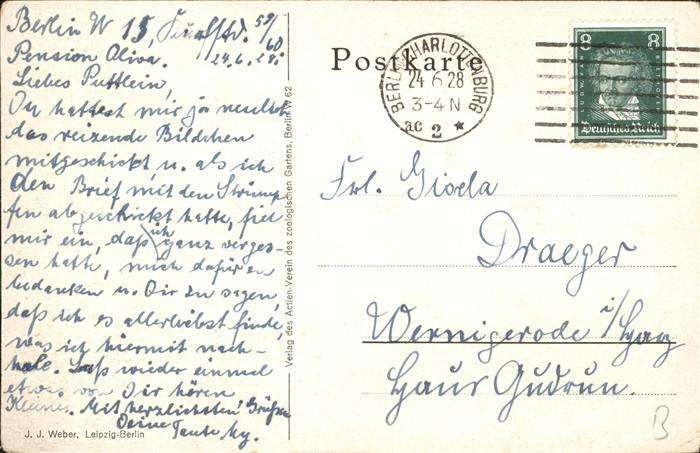 Berlin W 15, 59/60
Pension Oliva. 24.6.28.
Liebes Puttlein,
Du hattest mir ja neulich
das reizende Bildchen
mitgeschickt u. als ich
den Brief mit den Strümp-
fen abgeschickt hatte, fiel
mir ein, daß ich ganz verges-
sen hatte, mich dafür zu
bedanken u. Dir zu sagen,
daß ich es allerliebst finde,
was ich hiermit nach-
hole. Laß wieder einmal
etwas von Dir hören
Kleines. Mit herzlichsten Grüßen
Deine Tante
J. J. Weber, Leipzig-Berlin
Verlag des Actien-Verein des zoologischen Gartens, Berlin W 62
Postkarte
BERLIN-CHARLOTTENBURG
24.6.28
3-4 N
ac 2 *
8 8
Deutsches Reich
Frl. Gisela
Draeger
Wernigerode i/Harz
Haus Gudrun.
B